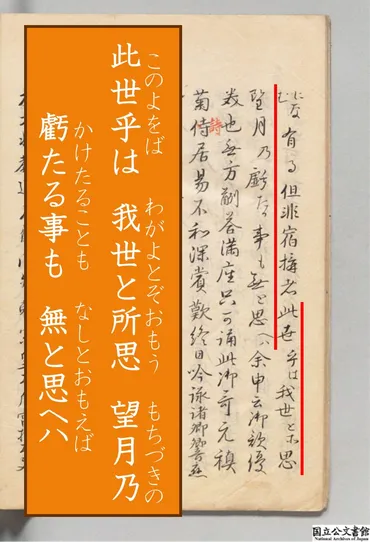 になむ有る但非宿搆者此世乎は我世と所思
望月乃虧たる事も無と思ヘハ余申云御歌優
美也無方酬荅満座只可誦此御哥元稹
詩
菊侍居易不和深賞歎終日吟詠諸卿饗應
このよをば わがよとぞおもう もちづきの
此世乎は 我世と所思 望月乃
かけたることも なしとおもえば
虧たる事も 無と思ヘハ
国立公文書館
National Archives of Japan